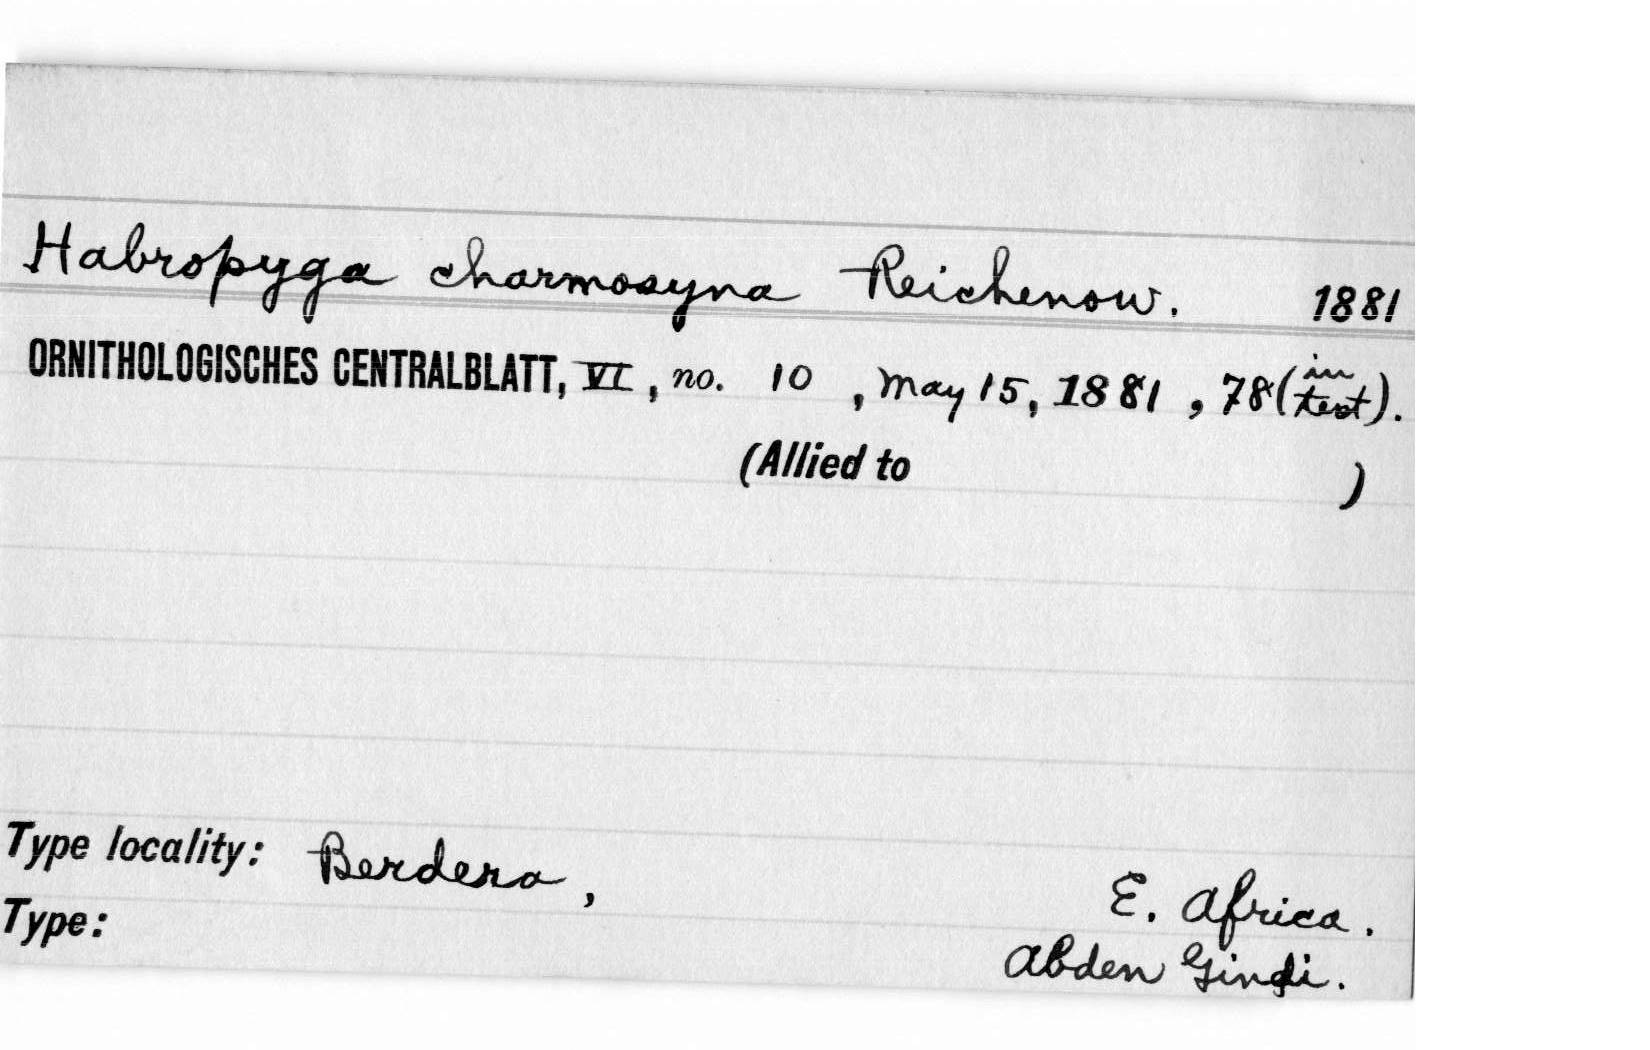 Habropyga charmosyna Reichenow. 1881
ORNITHOLOGISCHES CENTRALBLATT, VI, no. 10, May 15, 1881, 78 (in text).
(Allied to )
Type locality: Berdera, E. Africa.
Type: Abden Gindi.